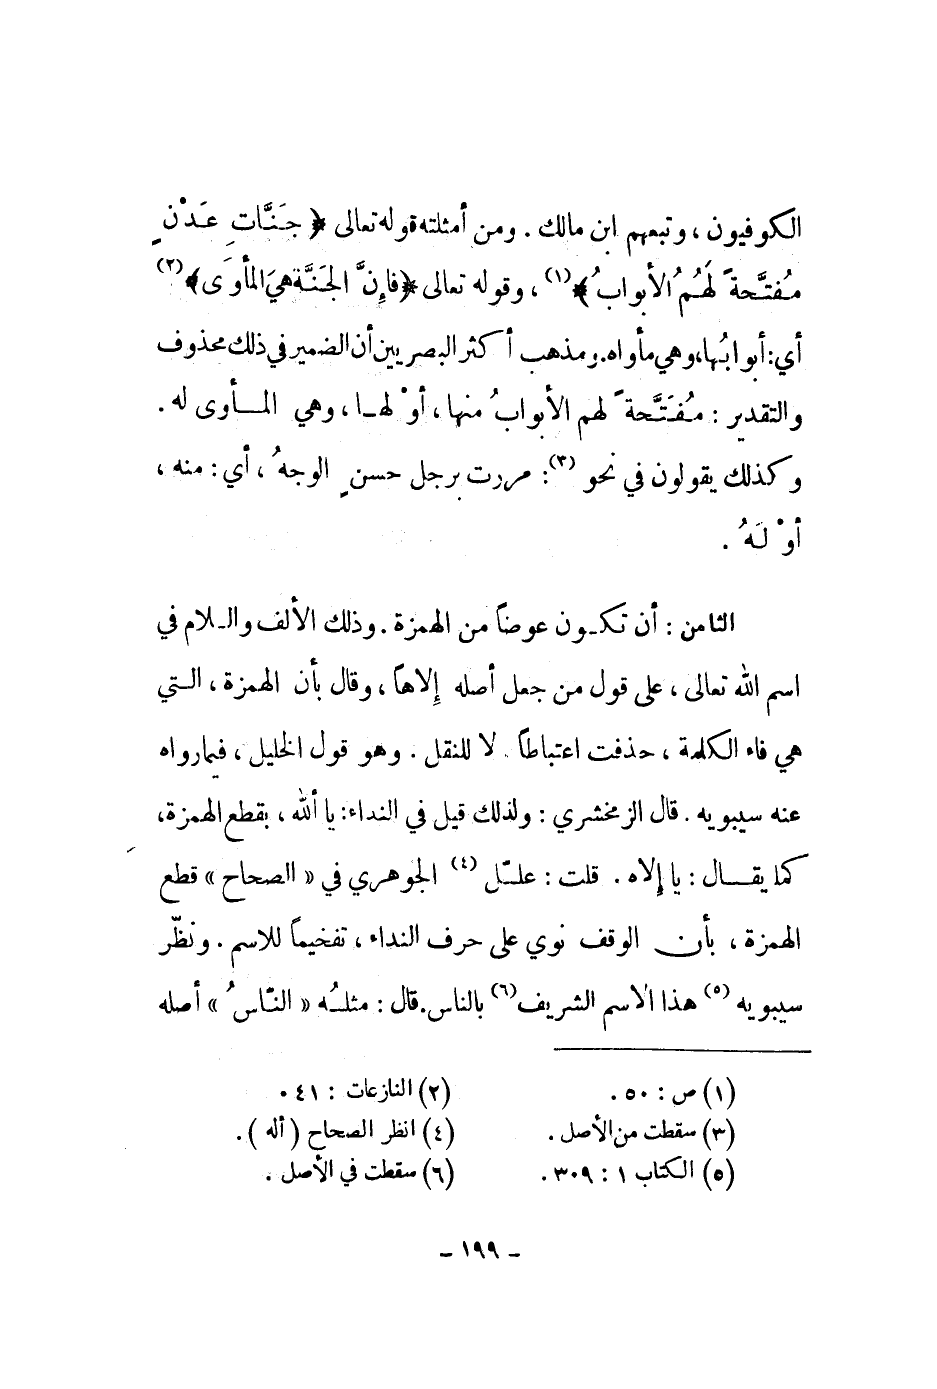 الكوفيون ، وتبعهم ابن مالك . ومن أمثلته قوله تعالى ﴿ جَنَّاتِ عَدْنٍ
مُفتَّحةً لَهُمُ الأبوابُ ﴾(١) ، وقوله تعالى ﴿فإِنَّ الجَنَّة هيَ المأوَى﴾(٢)
أي: أبوابُها، وهي مأواه. ومذهب أكثر البصريين أن الضمير في ذلك محذوف
والتقدير : مُفَتَّحةً لهم الأبوابُ منها ، أوْ لهـا ، وهي المـأوى له .
وكذلك يقولون في نحو (٣): مررت برجل حسنٍ الوجهُ ، أي : منه ،
أوْ لَهُ .
الثامن : أن تكـون عوضاً من الهمزة . وذلك الألف والـلام في
اسم الله تعالى ، على قول من جعل أصله إلاهاً ، وقال بأن الهمزة ، الـتي
هي فاء الكلمة ، حذفت اعتباطاً . لا للنقل . وهو قول الخليل ، فيما رواه
عنه سيبويه . قال الزمخشري : ولذلك قيل في النداء: يا ألله ، بقطع الهمزة،
كما يقـــال : يا إلاه . قلت : علـّل (٤) الجوهري في « الصحاح » قطع
الهمزة ، بأن الوقف نوي على حرف النداء ، تفخيماً للاسم . ونظّر
سيبويه (٥) هذا الاسم الشريف(٦) بالناس. قال : مثلـُه « النّاسُ » أصله
(١) ص : ٥٠ . (٢) النازعات : ٤١ .
(٣) سقطت من الأصل . (٤) انظر الصحاح ( أله ) .
(٥) الكتاب ١ : ٣٠٩ . (٦) سقطت في الأصل .
- ١٩٩ -